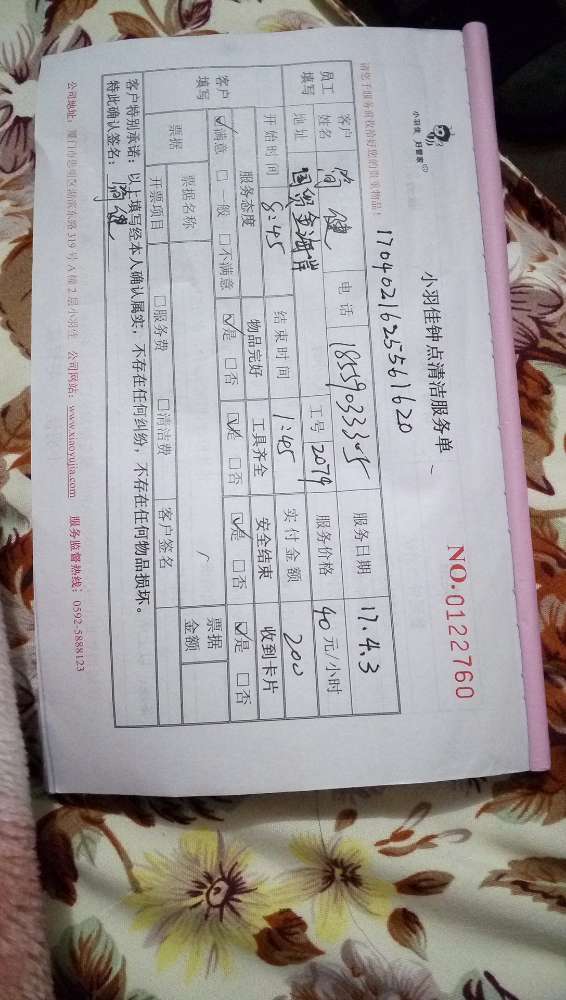 小羽佳 好管家
小羽佳钟点清洁服务单
NO.0122760
请您于服务前收拾好您的贵重物品!
17040216255561620
员工填写 客户姓名 简健 电话 服务日期 17.4.3
地址 国贸金海岸 工号 2079 服务价格 40 元/小时
客户填写 开始时间 8:45 结束时间 1:45 实付金额 200
服务态度 物品完好 工具齐全 安全结束 收到卡片
☑满意 □一般 □不满意 ☑是 □否 ☑是 □否 ☑是 □否 ☑是 □否
票据 票据名称 票据金额
开票项目 □服务费 □清洁费 客户签名
客户特别承诺:以上填写经本人确认属实,不存在任何纠纷,不存在任何物品损坏。
特此确认签名:简健
公司网站:www.xiaoyujia.com 服务监督热线:0592-5888123